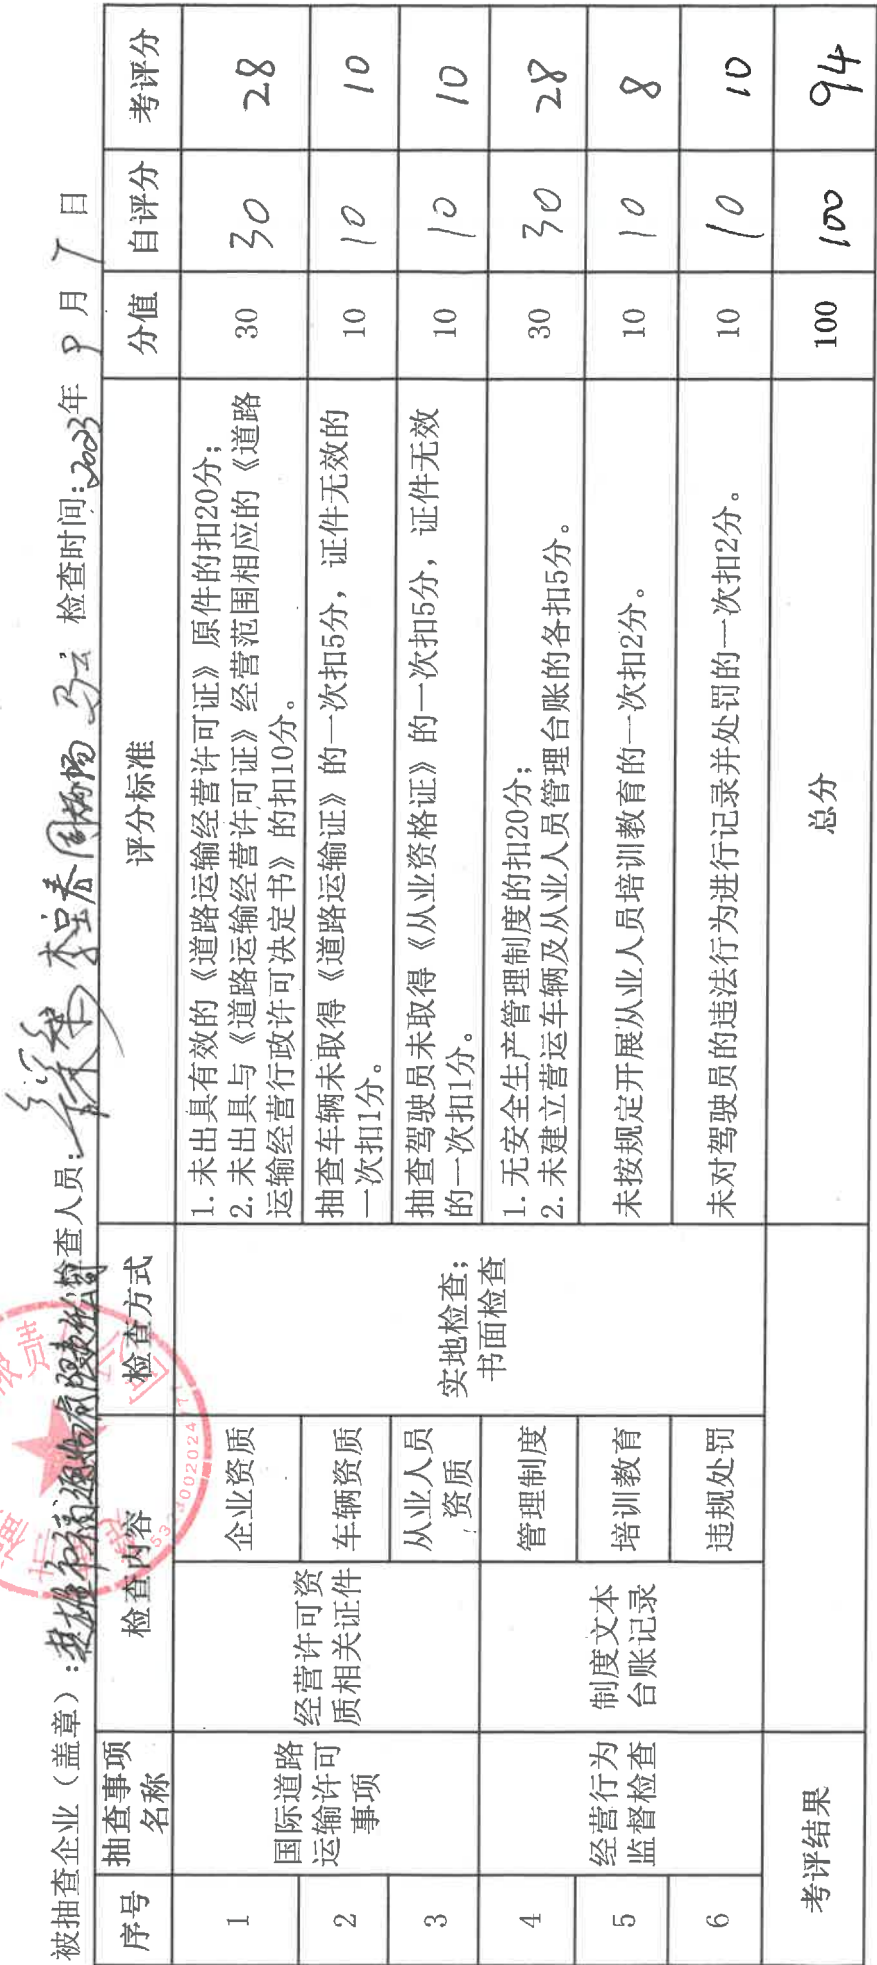 被抽查企业（盖章）：楚雄市福通物流有限责任公司 检查人员： 检查时间：2023年 9 月 7 日
序号 抽查事项名称 检查内容 检查方式 评分标准 分值 自评分 考评分
1 国际道路运输许可事项 经营许可资质相关证件 企业资质 实地检查；书面检查 1.未出具有效的《道路运输经营许可证》原件的扣20分；
2.未出具与《道路运输经营许可证》经营范围相应的《道路运输经营行政许可决定书》的扣10分。 30 30 28
2 车辆资质 抽查车辆未取得《道路运输证》的一次扣5分，证件无效的一次扣1分。 10 10 10
3 从业人员资质 抽查驾驶员未取得《从业资格证》的一次扣5分，证件无效的一次扣1分。 10 10 10
4 经营行为监督检查 制度文本台账记录 管理制度 1.无安全生产管理制度的扣20分；
2.未建立营运车辆及从业人员管理台账的各扣5分。 30 30 28
5 培训教育 未按规定开展从业人员培训教育的一次扣2分。 10 10 8
6 违规处罚 未对驾驶员的违法行为进行记录并处罚的一次扣2分。 10 10 10
考评结果 总分 100 100 94